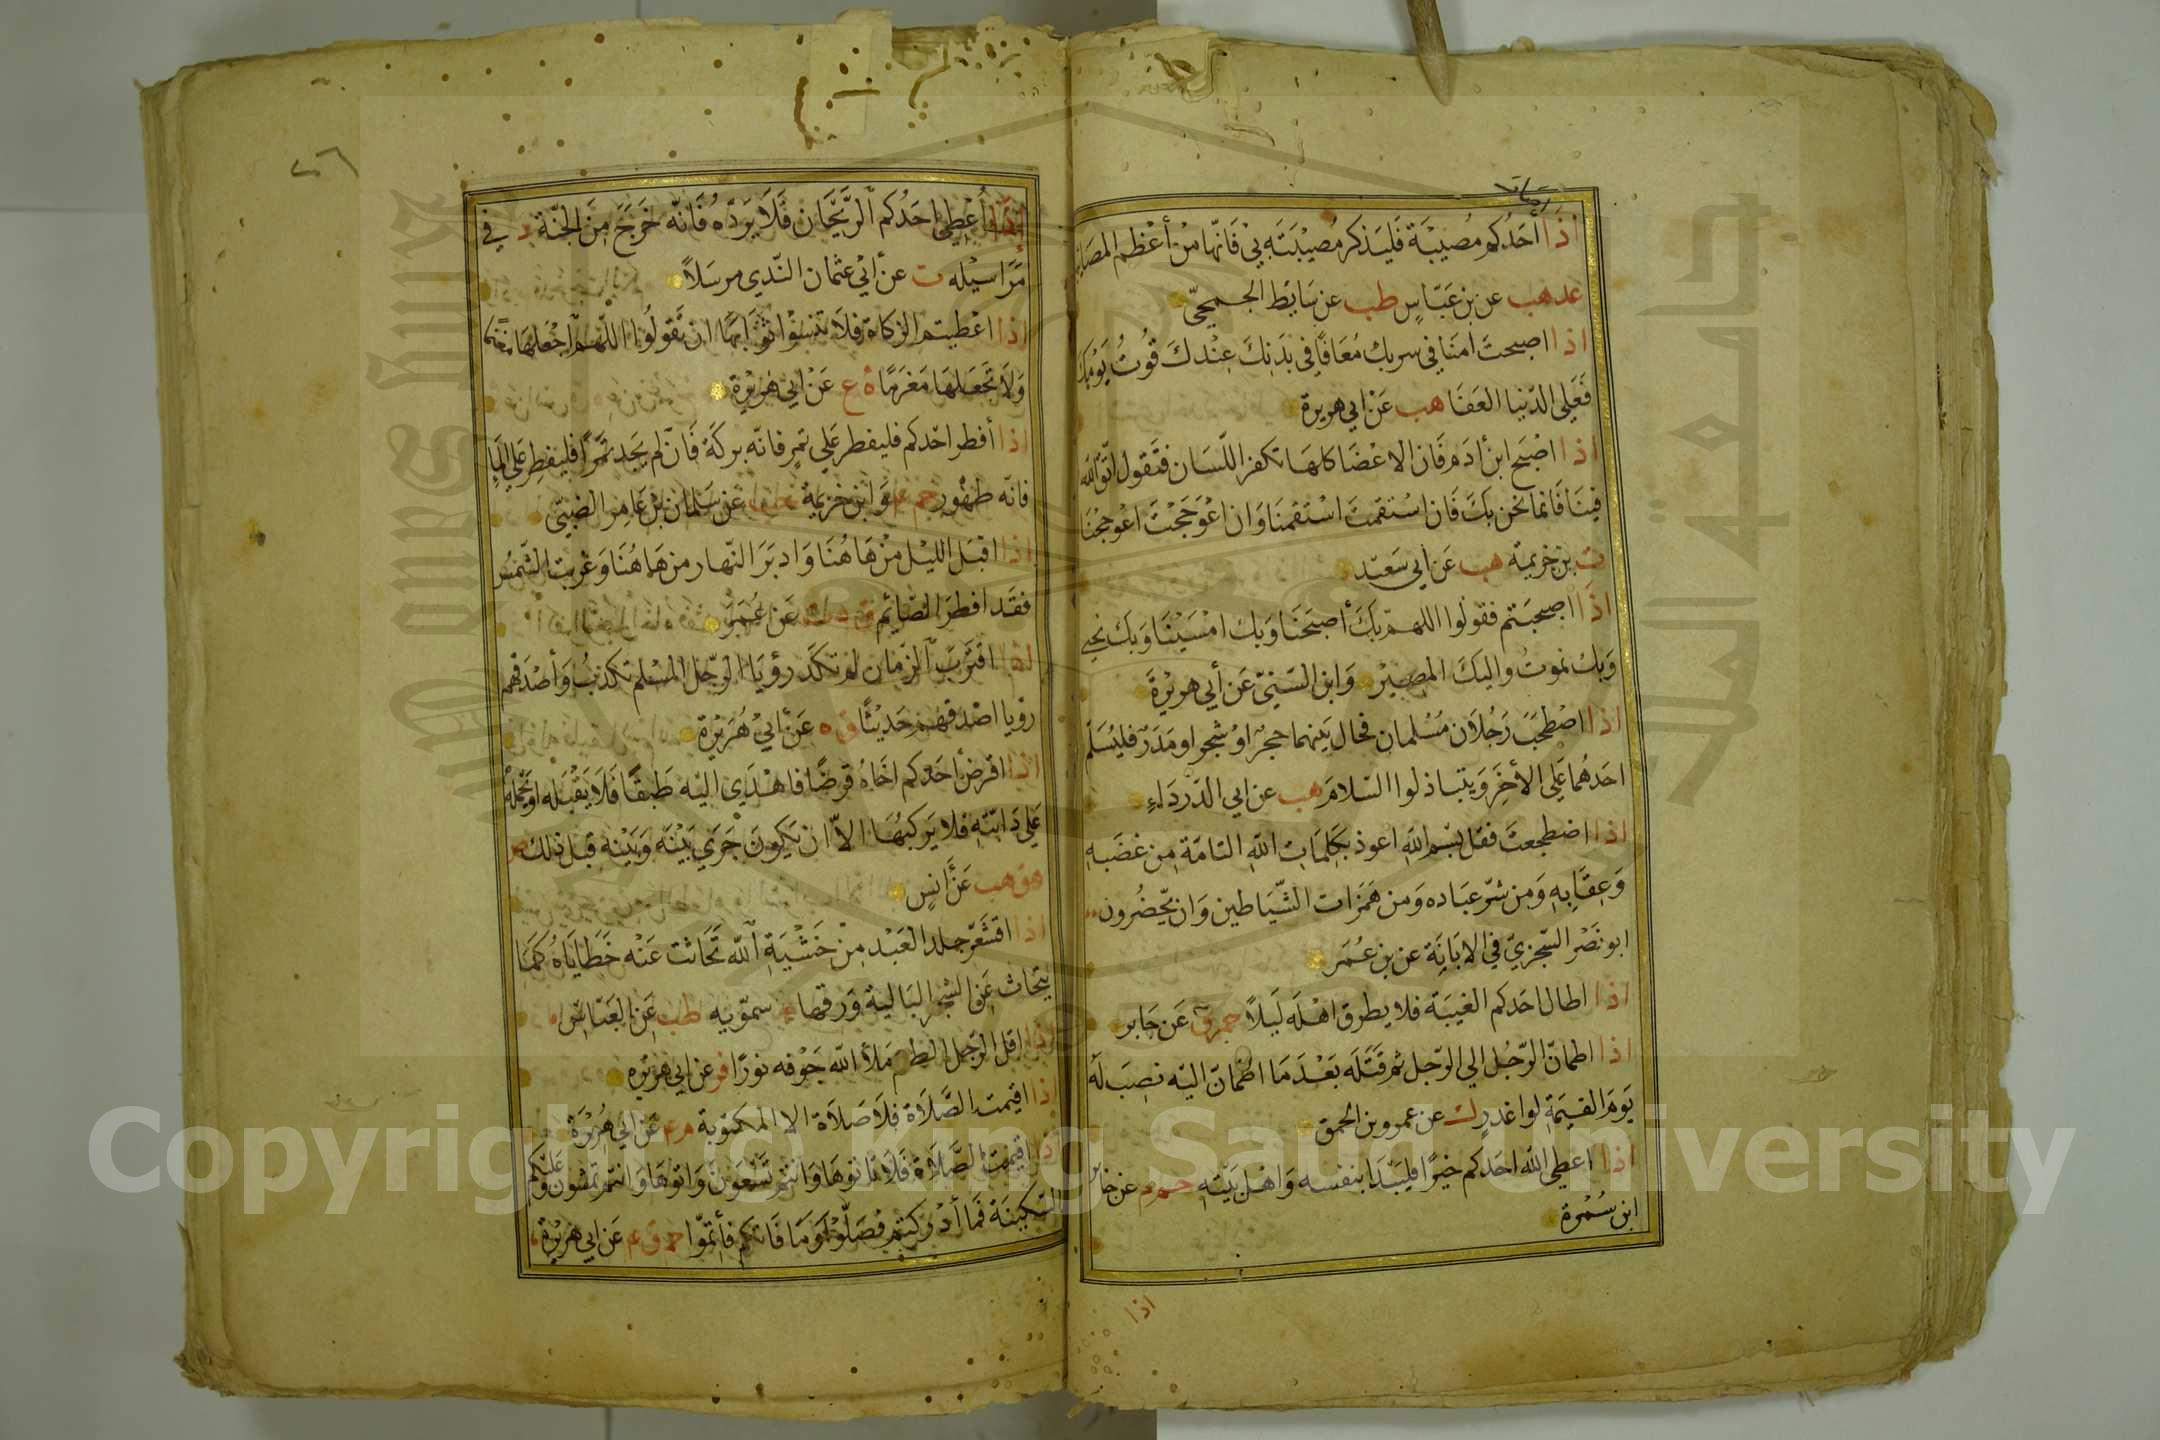 اصاب
اذا أحدكم مصيبة فليذكر مصيبته بي فانها من أعظم المصايب
عد هب عن بن عباس طب عن سابط الجمحي
اذا اصبحت امنا في سربك معافا في بدنك عندك قوت يومك
فعلى الدنيا العفا هب عن ابي هريرة
اذا اصبح ابن أدم فان الاعضا كلها تكفر اللسان فتقول اتق الله
فينا فانما نحن بك فان استقمت استقمنا وان اعوججت اعوججنا
ت بن خزيمة هب عن ابي سعيد
اذا اصبحتم فقولوا اللهم بك أصبحنا وبك امسينا وبك نحيى
وبك نموت واليك المصير وابن السني عن أبي هريرة
اذا اصطحب رجلان مسلمان فحال بينهما حجر او شجر او مدر فليسلم
احدهما على الأخر ويتباذلوا السلام هب عن ابي الدرداء
اذا اضطجعت فقل بسم الله اعوذ بكلمات الله التامة من غضبه
وعقابه ومن شر عباده ومن همزات الشياطين وان يحضرون
ابو نصر السجزي في الابانة عن بن عمر
اذا اطال احدكم الغيبة فلا يطرق اهله ليلا حم ق عن جابر
اذا اطمان الرجل الى الرجل ثم قتله بعد ما اطمان اليه نصب له
يوم القيمة لوا غدر ك عن عمرو بن الحمق
اذا اعطى الله احدكم خيرا فليبدا بنفسه واهل بيته حم م عن جابر
ابن سمرة
اذا
٢٦
اذا أعطي احدكم الريحان فلا يرده فانه خرج من الجنة د في
مراسيله ت عن أبي عثمان النهدي مرسلا
اذا اعطيتم الزكاة فلا تنسوا ثوابها ان تقولوا اللهم اجعلها مغنما
ولا تجعلها مغرما ه ع عن ابي هريرة
اذا أفطر احدكم فليفطر على تمر فانه بركة فان لم يجد تمرا فليفطر على الماء
فانه طهور حم ع وابن خزيمة حب عن سلمان بن عامر الضبي
اذا اقبل الليل من هاهنا وادبر النهار من هاهنا وغربت الشمس
فقد افطر الصايم ق د ت عن عمر
اذا اقترب الزمان لم تكد رؤيا الرجل المسلم تكذب وأصدقهم
رؤيا اصدقهم حديثا ق ه عن أبي هريرة
اذا اقرض أحدكم اخاه قرضا فاهدى اليه طبقا فلا يقبله او حمله
على دابته فلا يركبها الا ان يكون جرى بينه وبينه قبل ذلك ص
هق هب عن أنس
اذا اقشعر جلد العبد من خشية الله تحاتت عنه خطاياه كما
يتحاث عن الشجر البالية ورقها سمويه طب عن العباس
اذا اقل الرجل الطعم ملأ الله جوفه نورا فر عن ابي هريرة
اذا اقيمت الصلاة فلا صلاة الا المكتوبة م ع عن أبي هريرة
اذا اقيمت الصلاة فلا تاتوها وانتم تسعون واتوها وانتم تمشون وعليكم
السكينة فما أدركتم فصلوا وما فاتكم فأتموا حم ق ع عن ابي هريرة
جامعة الملك سعود
King Saud University
Copyright © King Saud University